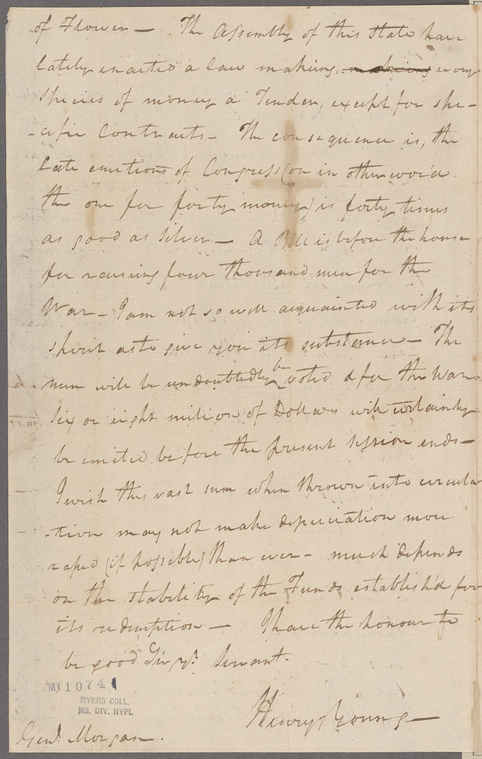 of Flower — The Assembly of this State have
lately enacted a law making every
species of money a Tender, except for spe-
-cific Contracts – The consequence is, the
late emitions of Congress (or in other words
the one for forty money) is forty times
as good as Silver – A Bill is before the house
for raising four thousand men for the
War – I am not so well acquainted with its
spirit as to give you its substance – The
men will be undoubtedly be voted & for the War
Six or eight milions of Dollars will certainly
be emited before the present session ends –
I wish this vast sum when thrown into circula
-tion may not make depreciation more
rapid (if possible) than ever – much depends
on the stability of the Funds establish'd for
its redemption — I have the honour to
be good Sir yr. Servant.
Henry Young
Genl. Morgan.
MJ 1074
MYERS COLL.
MS. DIV. NYPL